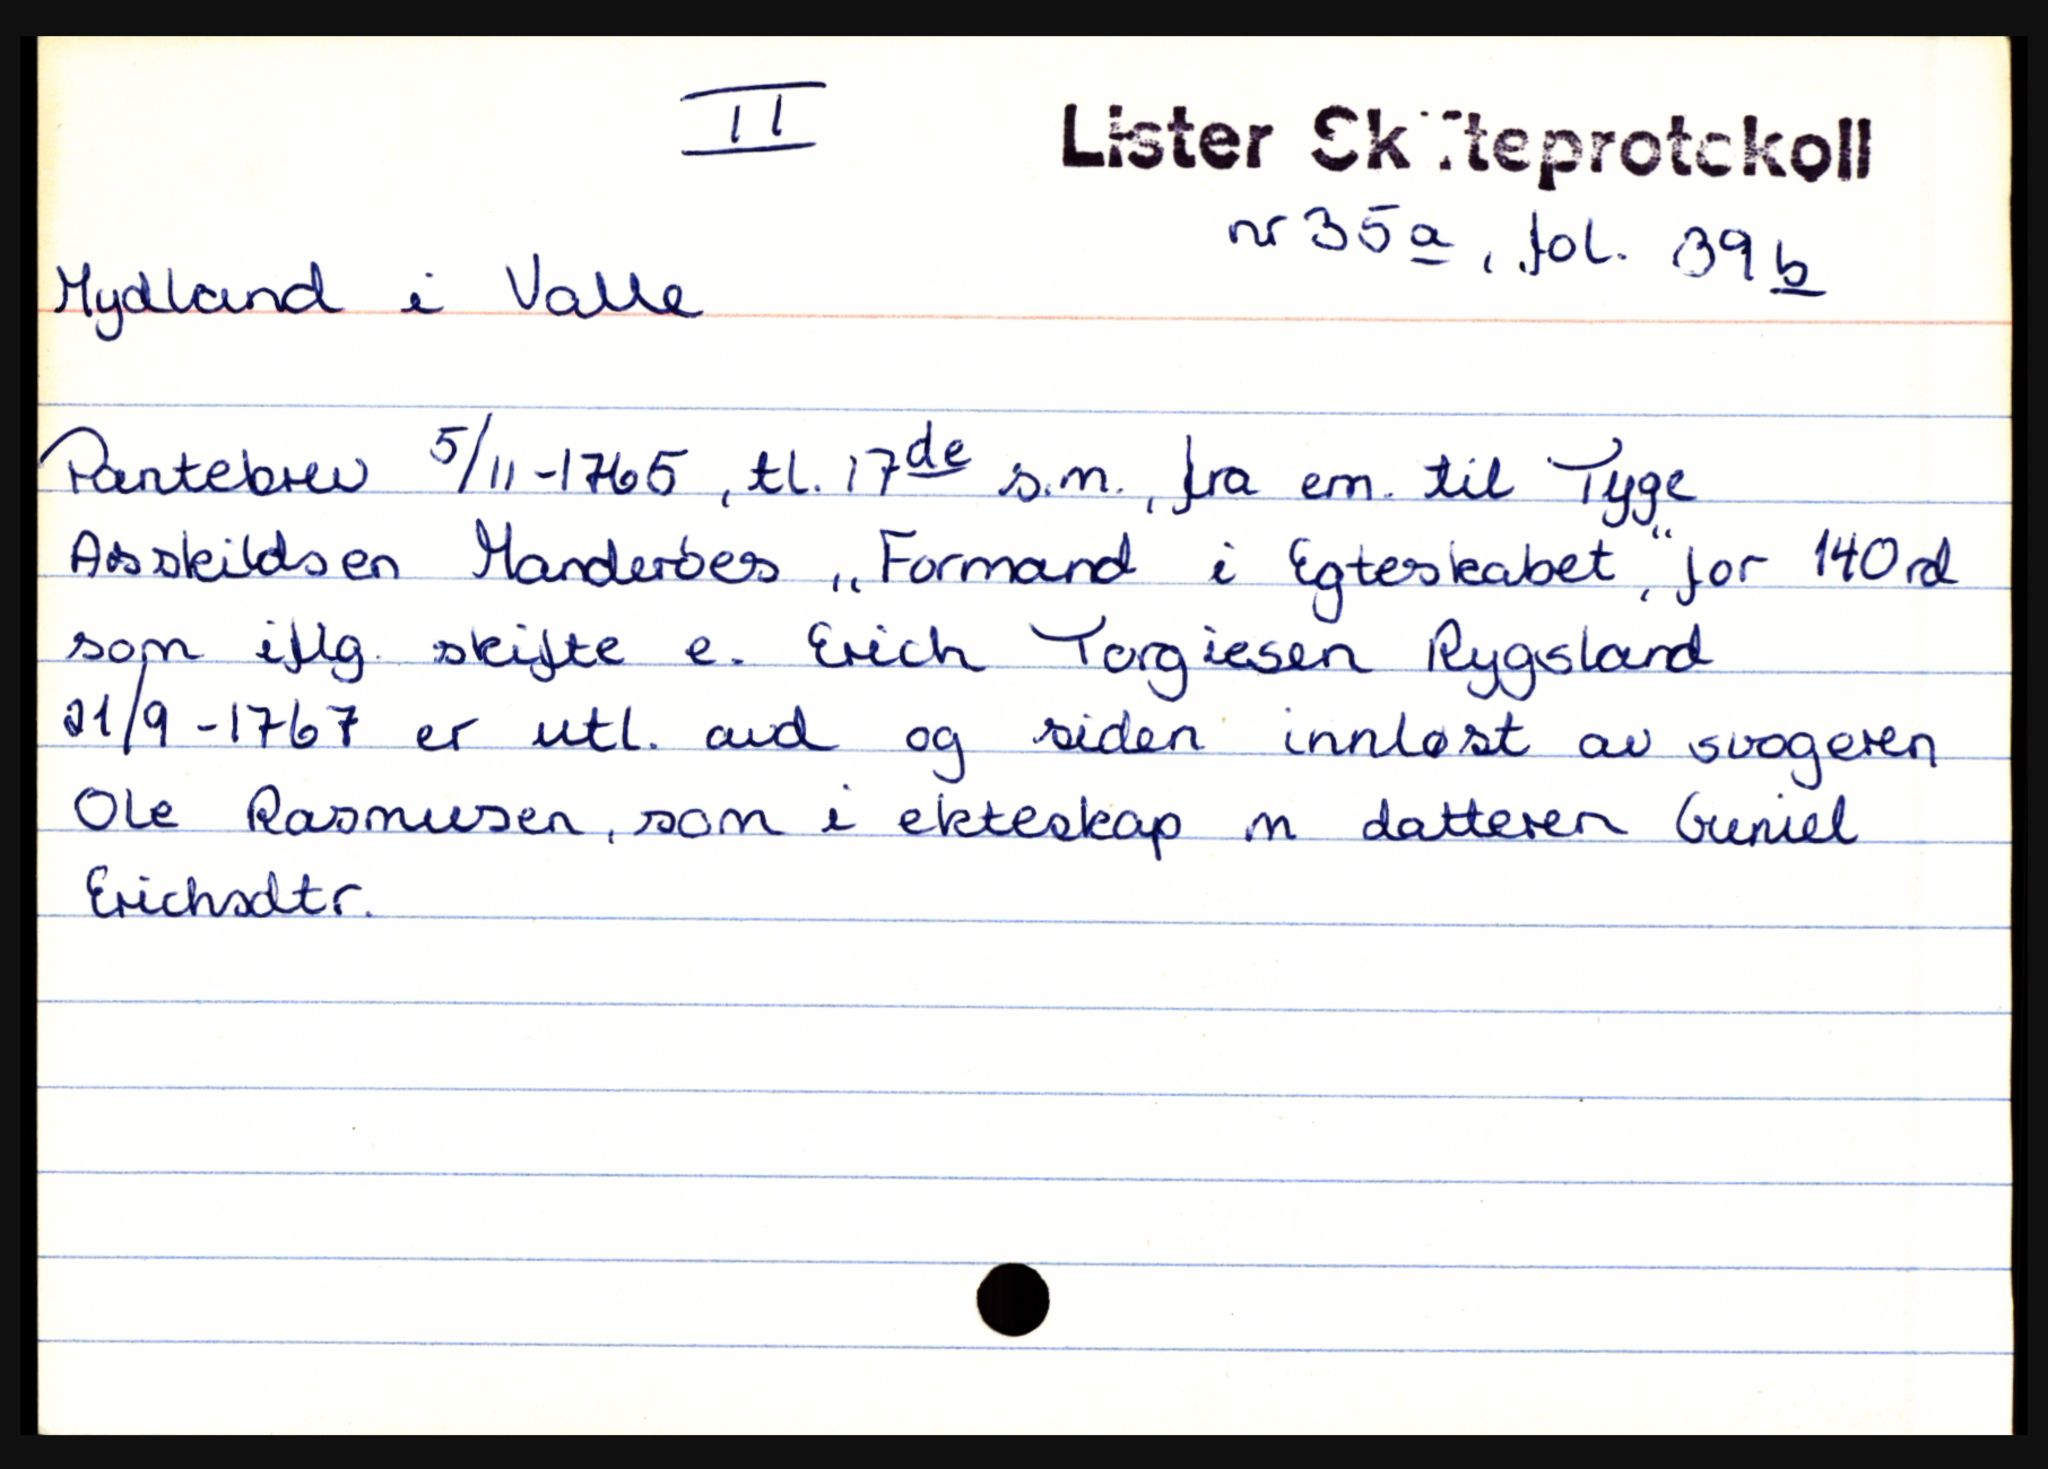 II
Lister Skifteprotokoll
nr 35a, fol. 39b
Mydland i Valle
Pantebrev 5/11-1765, tl. 17de s.m., fra em. til Tyge
Asskildsen Manderøes „Formand i Egteskabet," for 140 rd
som iflg. skifte e. Erich Torgiesen Rygsland
21/9-1767 er utl. avd og siden innløst av svogeren
Ole Rasmusen, som i ekteskap m datteren Guniel
Erichsdtr.